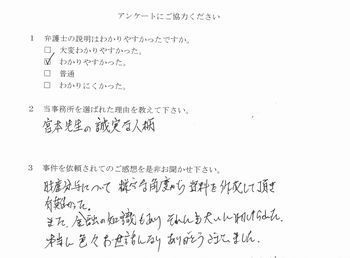 アンケートにご協力ください
1 弁護士の説明はわかりやすかったですか。
□ 大変わかりやすかった。
☑ わかりやすかった。
□ 普通
□ わかりにくかった。
2 当事務所を選ばれた理由を教えて下さい。
宮本先生の誠実な人柄
3 事件を依頼されてのご感想を是非お聞かせ下さい。
財産分与について 様々な角度から 資料を作成して頂き
有難かった。
また、金融の知識もあり それにも大いに助けられた。
本当に色々お世話になり ありがとうございました。